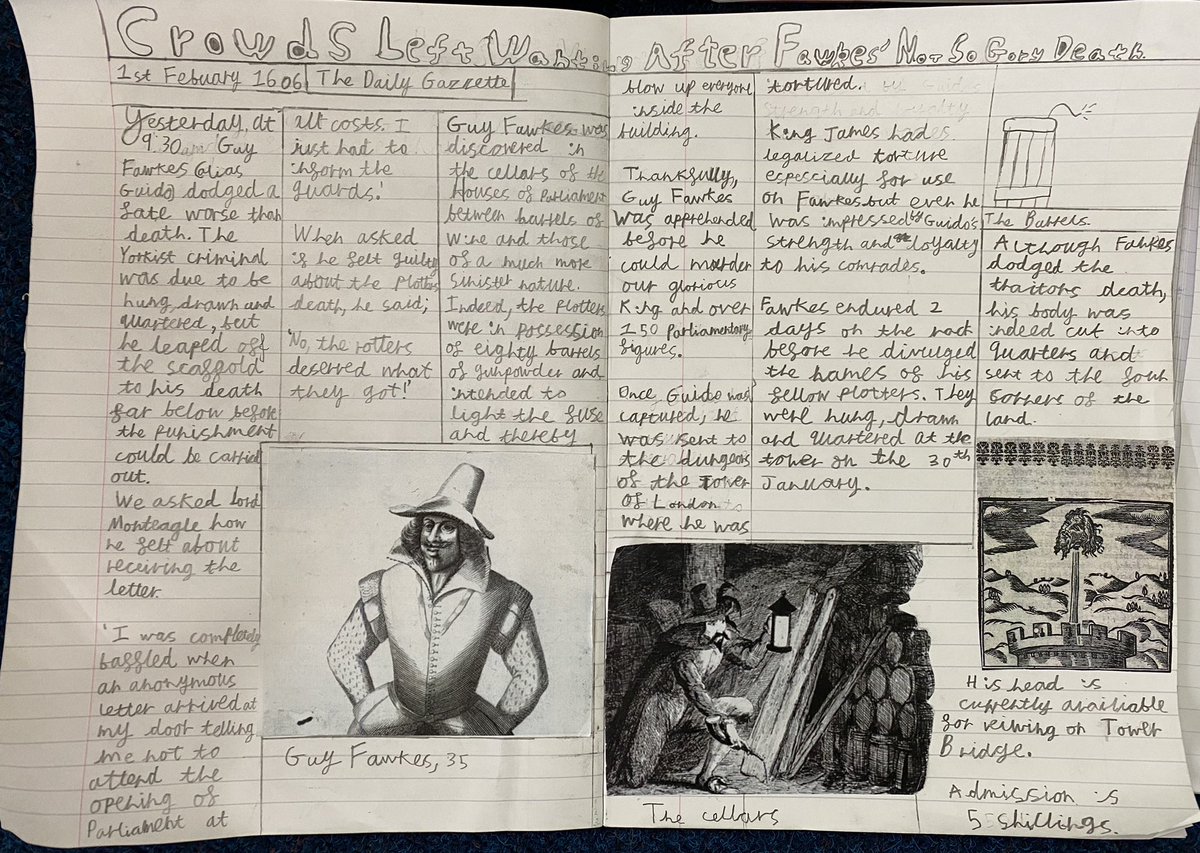 Crowds Left Waiting After Fawkes' Not So Gory Death.
1st Febuary 1606
The Daily Gazzette
Yesterday, at
9.30am Guy
Fawkes (alias
Guido) dodged a
fate worse than
death. The
Yorkist criminal
was due to be
hung, drawn and
quartered, but
he leaped off
the scaffold
to his death
far below before
the punishment
could be carried
out.
We asked lord
Monteagle how
he felt about
receiving the
letter.
'I was completely
baffled when
an anonymous
letter arrived at
my door telling
me not to
attend the
opening of
Parliament at
all costs. I
just had to
inform the
guards.'
When asked
if he felt guilty
about the plotters
death, he said;
'No, the rotters
deserved what
they got!'
Guy Fawkes, 35
Guy Fawkes was
discovered in
the cellars of the
Houses of Parliament
between barrels of
wine and those
of a much more
sinister nature.
Indeed, the plotters
were in possession
of eighty barrels
of gunpowder and
intended to
light the fuse
and thereby
blow up everyone
inside the
building.
Thankfully,
Guy Fawkes
was apprehended
before he
could murder
our glorious
King and over
150 Parliamentary
figures.
Once Guido was
captured, he
was sent to
the dungeons
of the Tower
of London
where he was
The cellars
tortured.
King James had
legalized torture
especcially for use
on Fawkes.but even he
was impressed by Guido's
strength and loyalty
to his comrades.
Fawkes endured 2
days on the rack
before he divulged
the names of his
fellow plotters. They
were hung, drawn
and quartered at the
tower on the 30th
January.
The Barrels.
Although Fawkes
dodged the
traitors death,
his body was
indeed cut into
quarters and
sent to the four
corners of the
land.
His head is
currently availiable
for veiwing on Tower
Bridge.
Admission is
5 shillings.